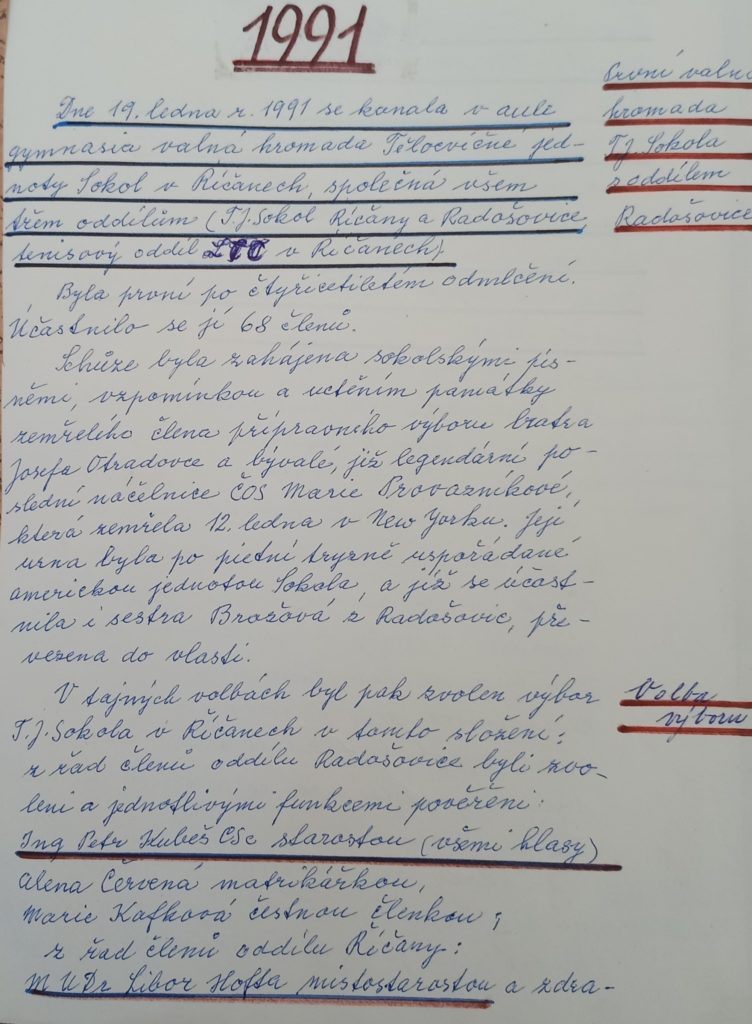 1991
Dne 19. ledna r. 1991 se konala v aule
gymnasia valná hromada Tělocvičné jed-
noty Sokol v Říčanech, společná všem
třem oddílům (T.J. Sokol Říčany a Radošovice,
tenisový oddíl LTC v Říčanech)
První valná
hromada
T.J. Sokola
s oddílem
Radošovice
Byla první po čtyřicetiletém odmlčení.
Účastnilo se jí 68 členů.
Schůze byla zahájena sokolskými pís-
němi, vzpomínkou a uctěním památky
zemřelého člena přípravného výboru bratra
Josefa Otradovce a bývalé, již legendární po-
slední náčelnice ČOS Marie Provazníkové,
která zemřela 12. ledna v New Yorku. Její
urna byla po pietní tryzně uspořádané
americkou jednotou Sokola, a jíž se účast-
nila i sestra Brožová z Radošovic, pře-
vezena do vlasti.
V tajných volbách byl pak zvolen výbor
T.J. Sokola v Říčanech v tomto složení:
z řad členů oddílu Radošovice byli zvo-
leni a jednotlivými funkcemi pověřeni:
Ing Petr Kubeš CSc starostou (všemi hlasy)
Alena Červená matrikářkou,
Marie Kafková čestnou členkou;
z řad členů oddílu Říčany:
MUDr Libor Hofta místostarostou a zdra-
Volba
výboru